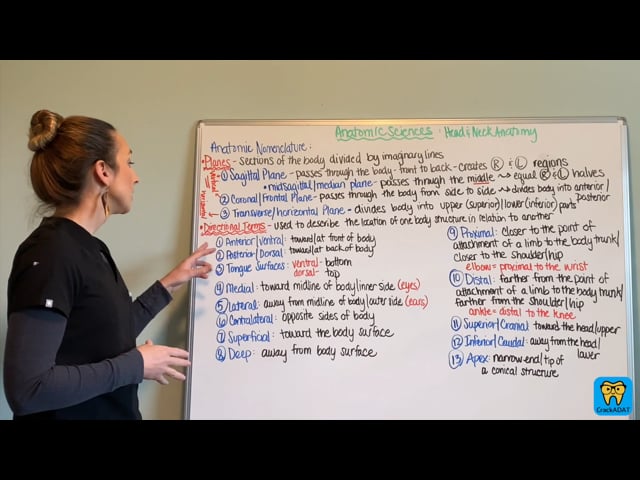 Anatomic Sciences : Head & Neck Anatomy
Anatomic Nomenclature:
• Planes - sections of the body divided by imaginary lines
① Sagittal Plane - passes through the body - front to back - creates Ⓡ & Ⓛ regions
• midsagittal/median plane - passes through the middle → equal Ⓡ & Ⓛ halves
② Coronal/Frontal Plane - passes through the body from side to side → divides body into anterior/posterior
③ Transverse/horizontal Plane - divides body into upper (superior)/lower (inferior) parts
• Directional Terms - used to describe the location of one body structure in relation to another
① Anterior/Ventral: toward/at front of body
② Posterior/Dorsal: toward/at back of body
③ Tongue Surfaces: ventral - bottom
dorsal - top
④ Medial: toward midline of body/inner side (eyes)
⑤ lateral: away from midline of body/outer side (ears)
⑥ Contralateral: opposite sides of body
⑦ Superficial: toward the body surface
⑧ Deep: away from body surface
⑨ Proximal: closer to the point of
attachment of a limb to the body trunk/
closer to the shoulder/hip
elbow = proximal to the wrist
⑩ Distal: farther from the point of
attachment of a limb to the body trunk/
farther from the shoulder/hip
ankle = distal to the knee
⑪ Superior/Cranial: toward the head/upper
⑫ Inferior/Caudal: away from the head/
lower
⑬ Apex: narrow end/tip of
a conical structure
CrackADAT